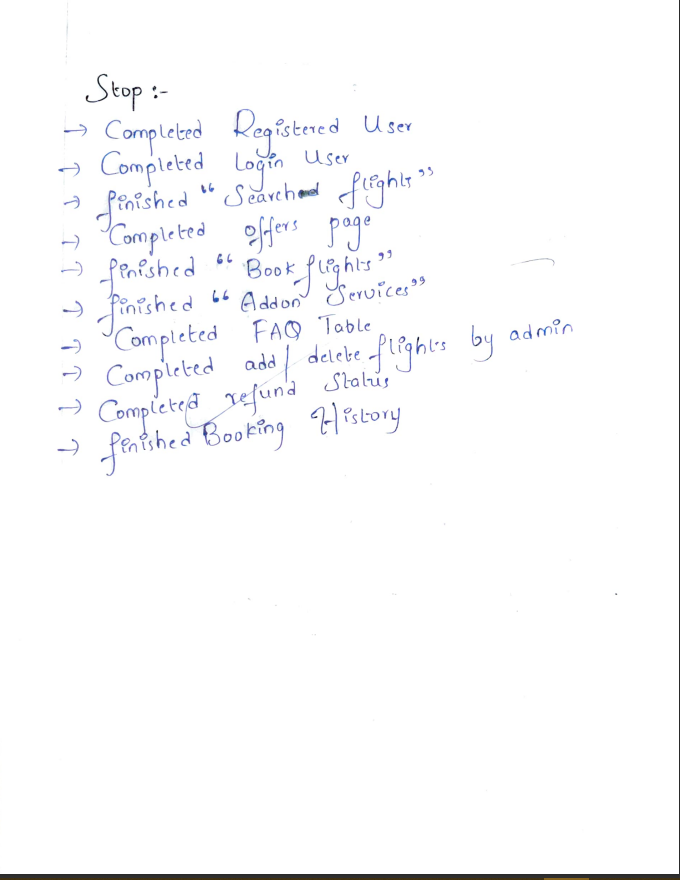 Stop :-
→ Completed Registered User
→ Completed Login User
→ finished “Search flights”
→ Completed offers page
→ finished “Book flights”
→ finished “Addon Services”
→ Completed FAQ Table
→ Completed add/delete flights by admin
→ Completed refund Status
→ finished Booking History